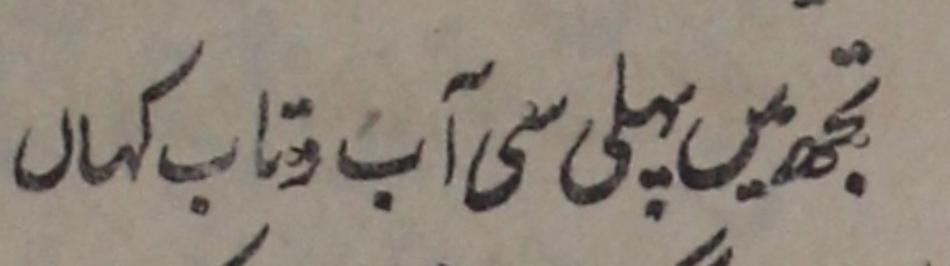 تجھ میں پہلی سی آب و تاب کہاں